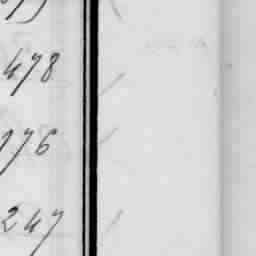 478
176
247